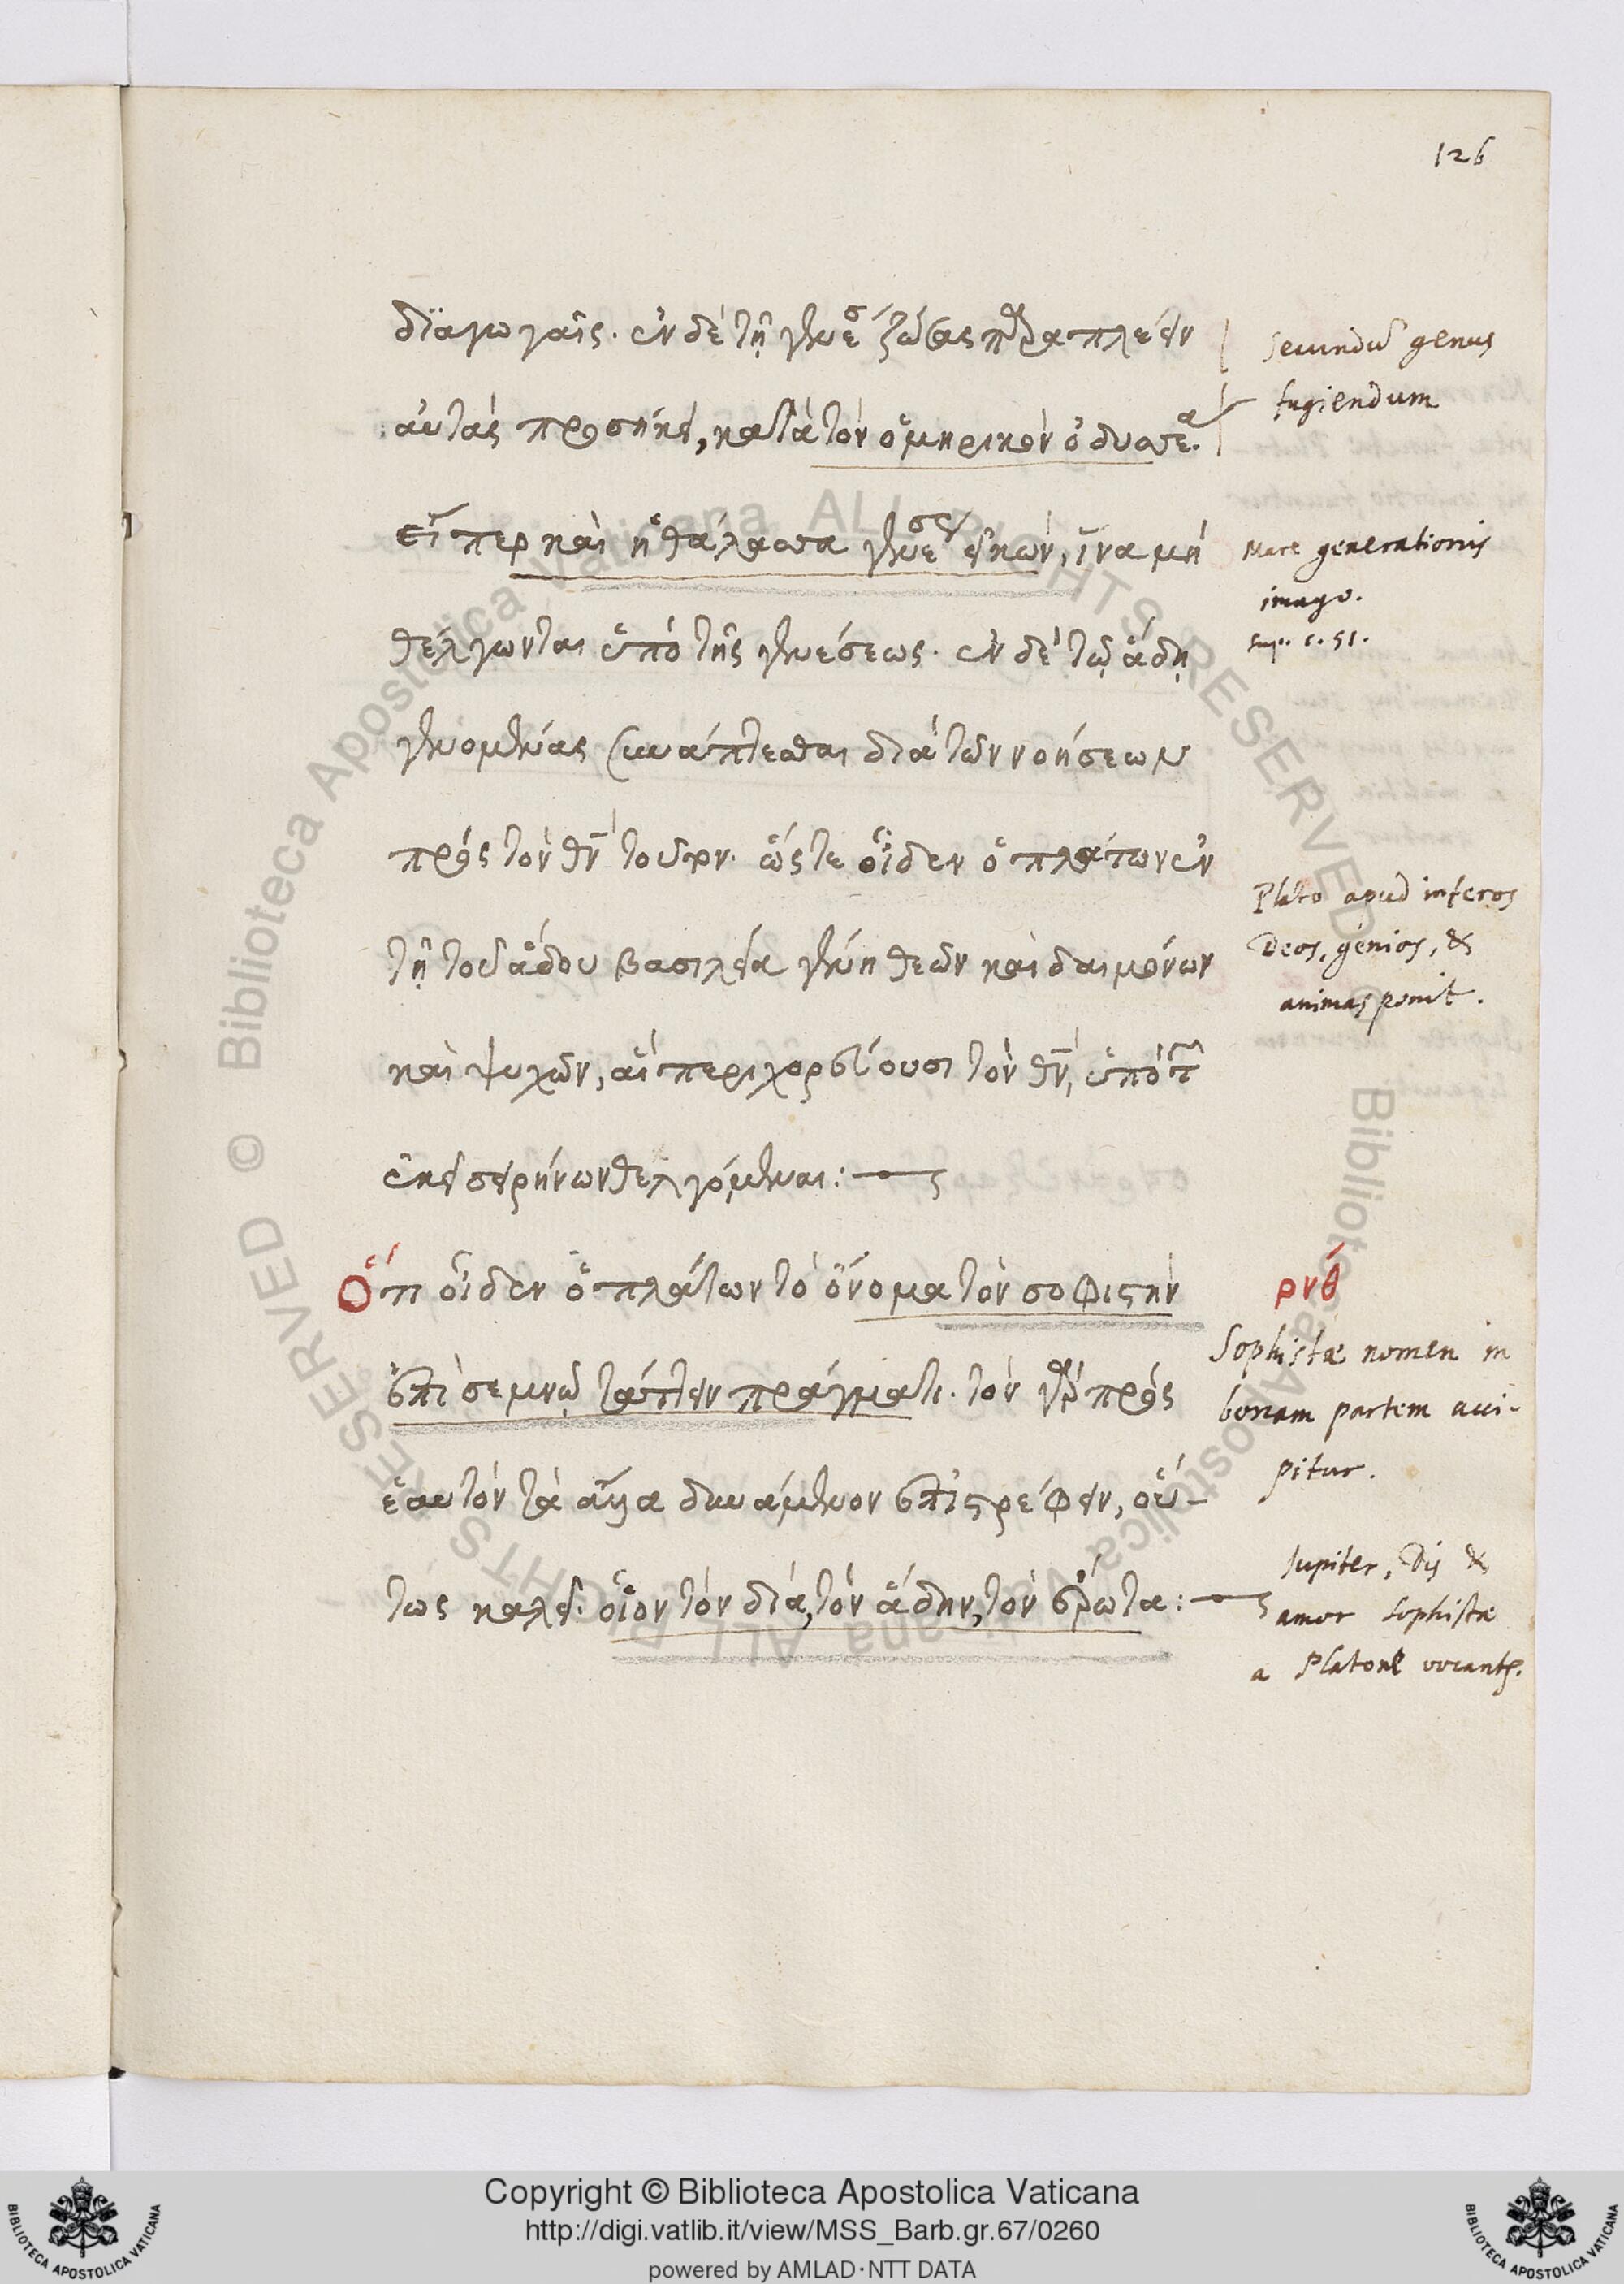 126
διαγωγαῖς. ἐν δὲ τῇ γενέσ ζώσας παραπλεῖν
αὐτὰς προσήκει, κατὰ τὸν ὁμηρικὸν ὀδυσσέα.
εἴπερ καὶ ἡ θάλασσα γενέσεως εἰκών, ἵνα μὴ
θέλγωνται ὑπὸ τῆς γενέσεως. ἐν δὲ τῷ ἅδῃ
γενομένας συνάπτεσθαι διὰ τῶν νοήσεων
πρὸς τὸν θν τοῦρν. ὥστε οἶδεν ὁ πλάτων ἐν
τῇ τοῦ ἅδου βασιλεία γένη θεῶν καὶ δαιμόνων
καὶ ψυχῶν, αἳ περιχορεύουσι τὸν θν, ὑπὸ τ
ἐκεῖ σειρήνων θελγόμεναι:
Ὅτι οἶδεν ὁ πλάτων τὸ ὄνομα τὸν σοφιστὴν
ἐπὶ σεμνῷ τάττειν πράγματι. τὸν γὰρ πρὸς
ἑαυτὸν τὰ ἄλλα δυνάμενον ἐπιστρέφειν, οὕ-
τως καλεῖ. οἷον τὸν δία, τὸν ἅδην, τὸν ἔρωτα:
secundũ genus
fugiendum
Mare generationis
imago.
sup. c. 51.
Plato apud inferos
Deos, genios, &
animas ponit.
ρνθ
Sophistæ nomen in
bonam partem acci-
pitur.
Jupiter, Dis &
amor sophistæ
a Platone vocantr.
Biblioteca Apostolica Vaticana ALL RIGHTS RESERVED © Biblioteca Apostolica Vaticana ALL RIGHTS RESERVED ©
Copyright © Biblioteca Apostolica Vaticana
http://digi.vatlib.it/view/MSS_Barb.gr.67/0260
powered by AMLAD·NTT DATA
BIBLIOTECA APOSTOLICA VATICANA
BIBLIOTECA APOSTOLICA VATICANA